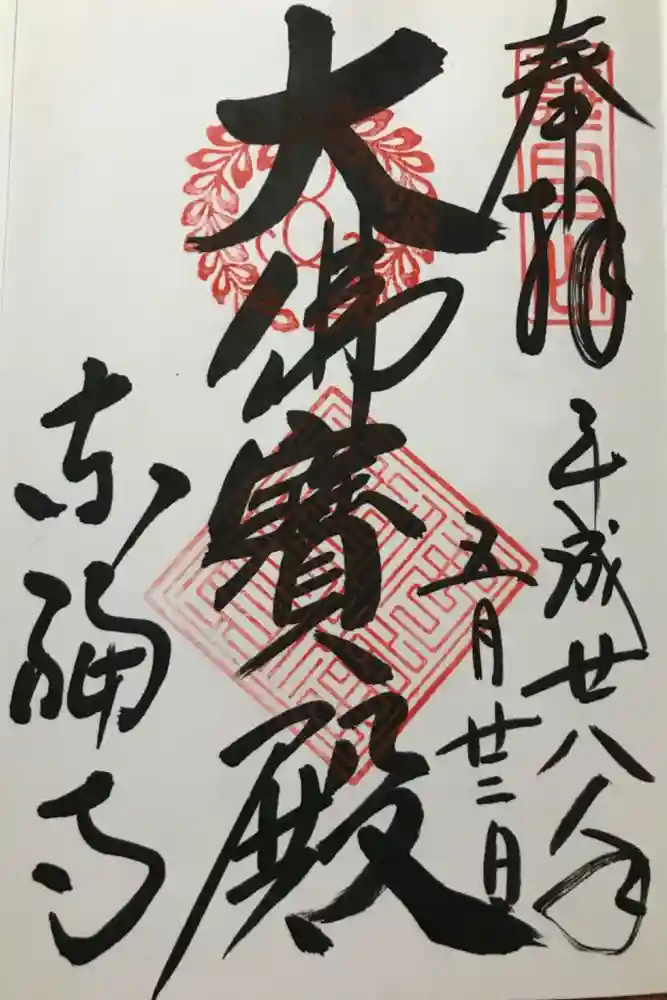 奉拝
平成廿八年
五月廿二日
大佛寶殿
東福寺